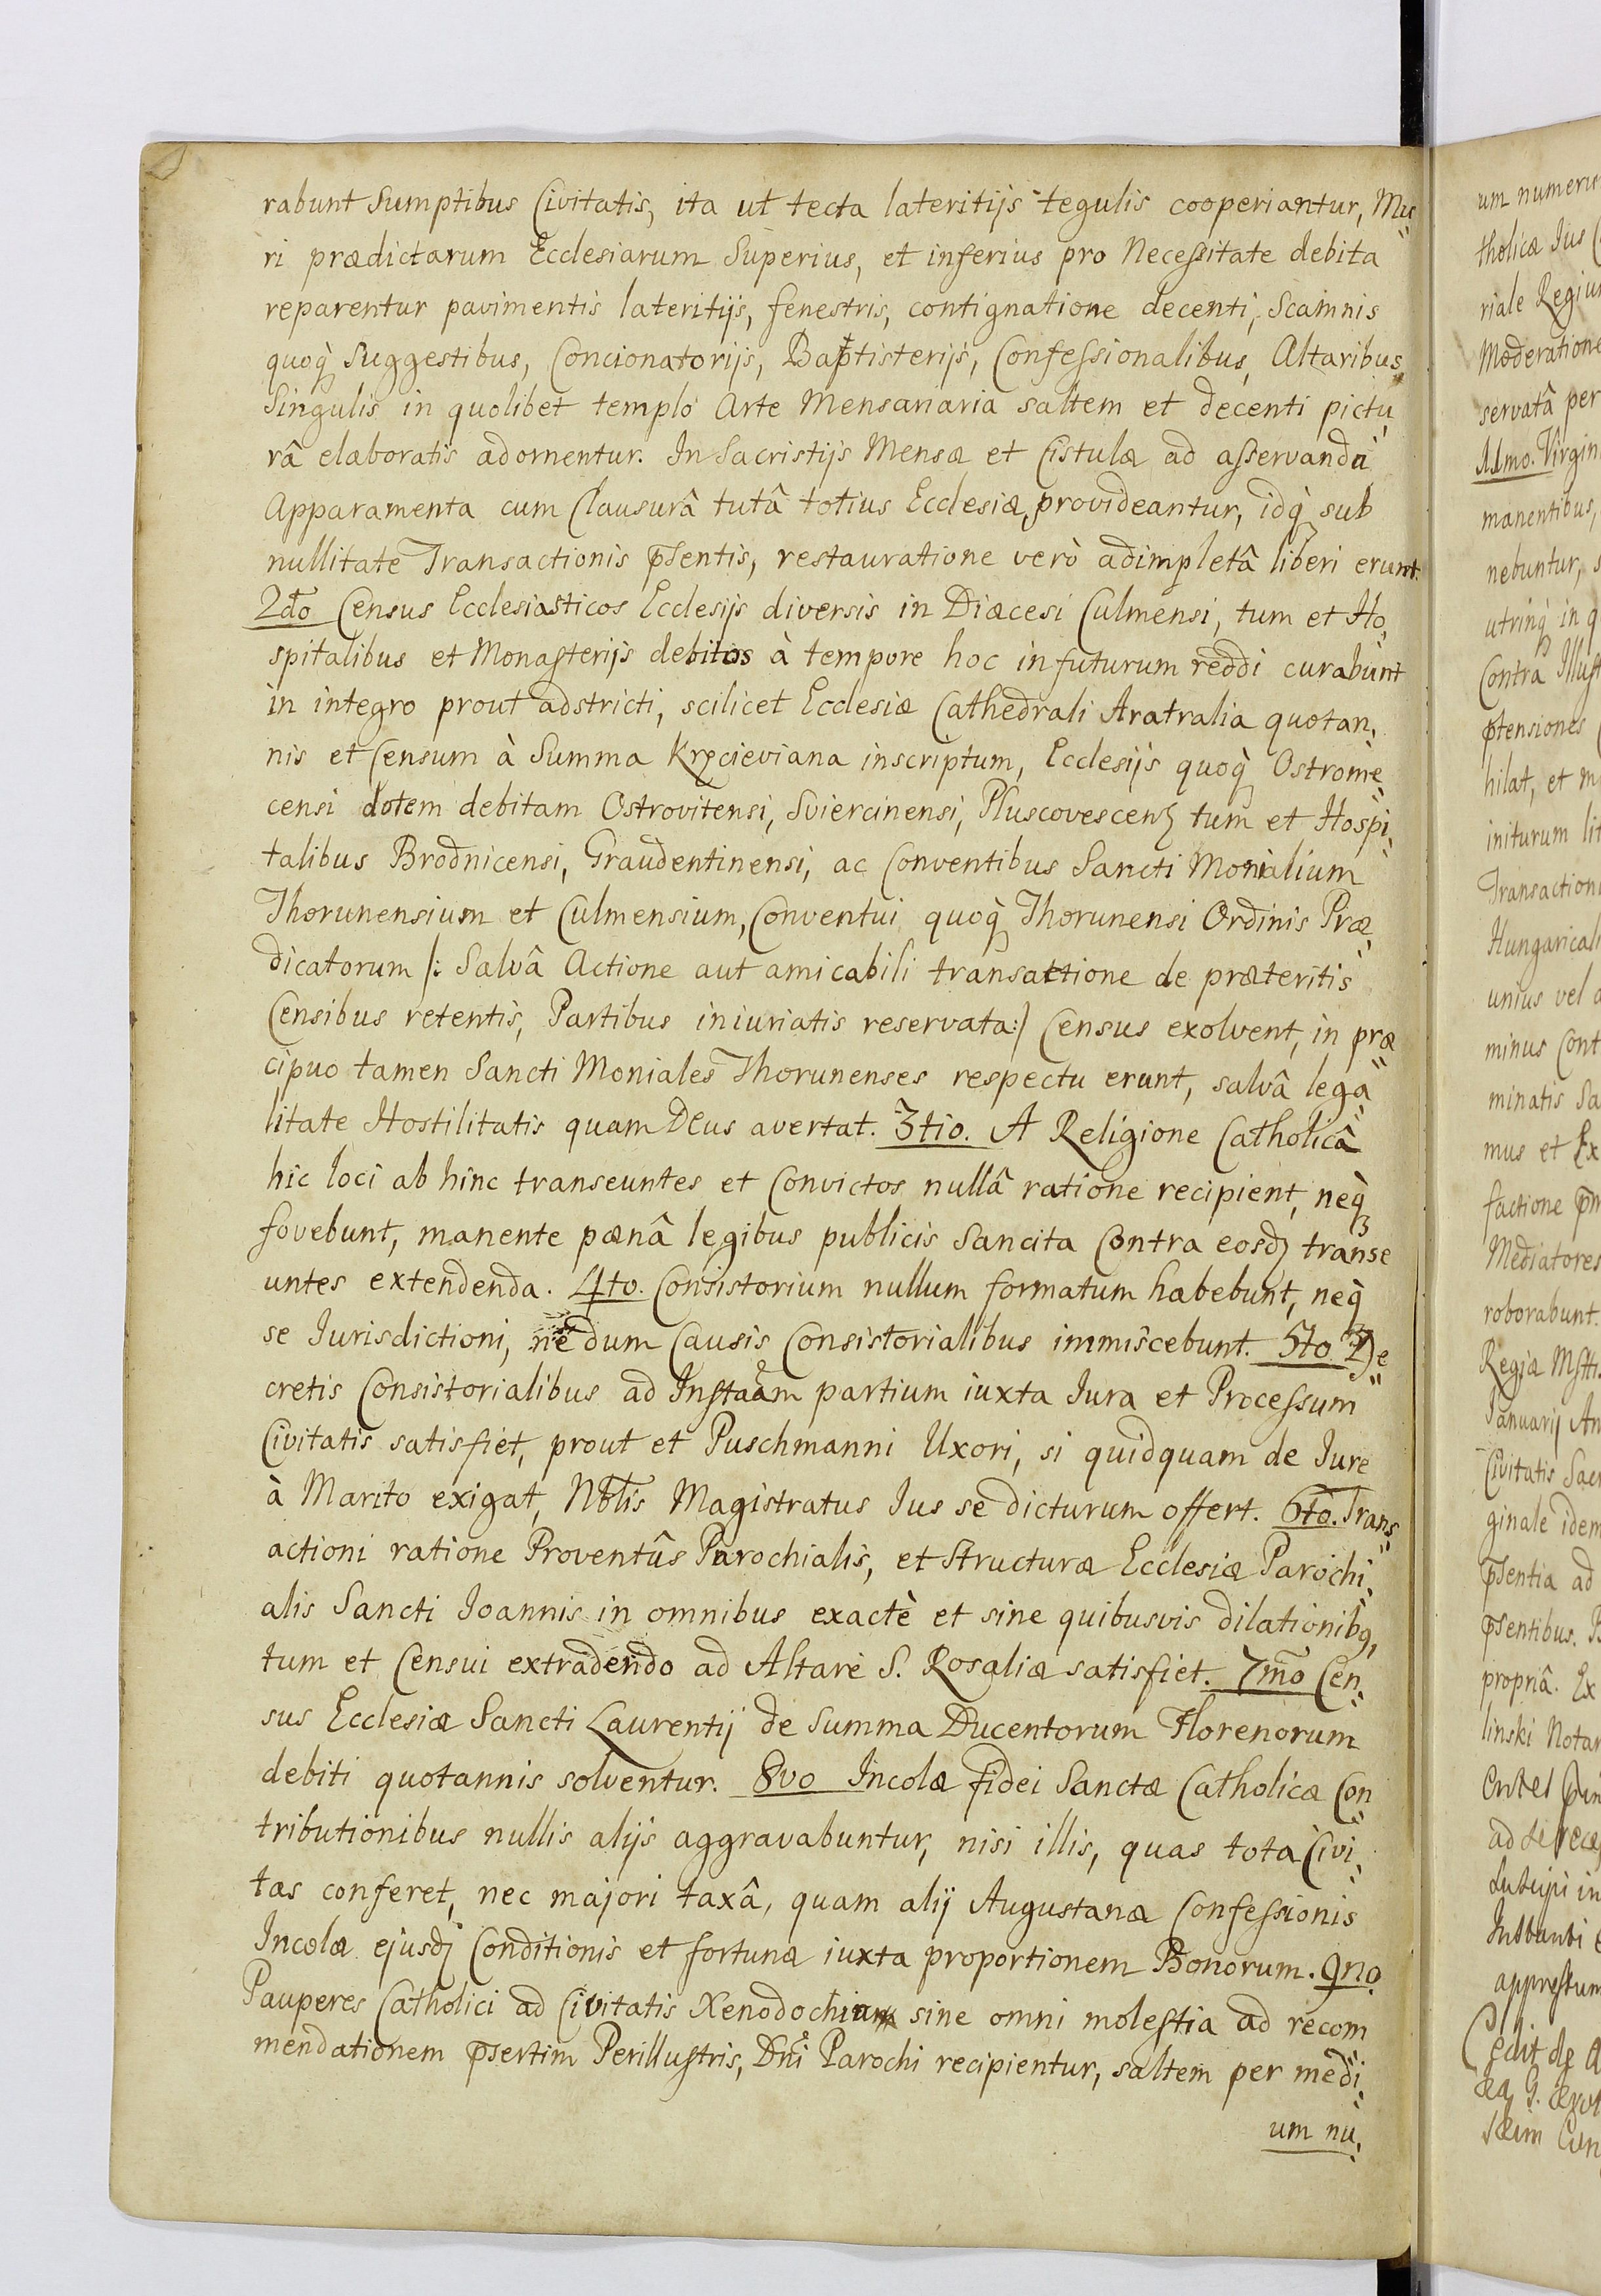 rabunt Sumptibus Civitatis, ita ut tecta lateritijs tegulis cooperiantur, Mu„
ri prædictarum Ecclesiarum Superius, et inferius pro Necessitate debita
reparentur pavimentis lateritijs, fenestris, contignatione decenti, Scamnis
quoq̀ Suggestibus, Concionatorijs, Baptisterijs, Confessionalibus, Altaribus,
Singulis in quolibet templo Arte Mensariaria saltem et decenti pictu„
râ elaboratis adornentur. In Sacristijs Mensæ et Cistulæ ad asservandũ
Apparamenta cum Clausurâ tutâ totius Ecclesiæ, provideantur, idq̀ sub
nullitate Transactionis p̃sentis, restauratione verò adimpletâ liberi erunt.
2do Census Ecclesiasticos Ecclesijs diversis in Diæcesi Culmensi, tum et Ho„
spitalibus et Monasterijs debitos à tempore hoc in futurum reddi curabunt
in integro prout adstricti, scilicet Ecclesiæ Cathedrali Aratralia quotan„
nis et Censum à Summa inscriptum, Ecclesijs quoq̀ Ostrome„
censi dotem debitam Ostrovitensi, Sviercinensi, Pluscovescenz tum et Hospi„
talibus Brodnicensi, Graudentinensi, ac Conventibus Sancti Monialium
Thorunensium et Culmensium, Conventui quoq̀ Thorunensi Ordinis Præ„
dicatorum /: Salvâ Actione aut amicabili transactione de præteritis
Censibus retentis, Partibus iniuriatis reservata:/ Census exolvent, in præ„
cipuo tamen Sancti Moniales Thorunenses respectu erunt, salvâ lega„
litate Hostilitatis quam DEus avertat. 3tio. A Religione Catholicâ
hic loci ab hinc transeuntes et Convictos nullâ ratione recipient, neq̀
fovebunt, manente pænâ legibus publicis Sancita Contra eosdz transe
untes extendenda. 4to. Consistorium nullum formatum habebunt, neq̀
se Jurisdictioni, nedum Causis Consistorialibus immiscebunt. 5to De„
cretis Consistorialibus ad Instaãm partium iuxta Jura et Processum
Civitatis satisfiet, prout et Puschmanni Uxori, si quidquam de Jure
à Marito exigat, Nblis Magistratus Jus se dicturum offert. 6to. Trans„
actioni ratione Proventûs Parochialis, et Structuræ Ecclesiæ Parochi„
alis Sancti Joannis in omnibus exactè et sine quibusvis dilationibq,
tum et Censui extradendo ad Altare S. Rosaliæ satisfiet. 7mo Cen„
sus Ecclesiæ Sancti Laurentij de Summa Ducentorum Florenorum
debiti quotannis solventur. 8vo Incolæ fidei Sanctæ Catholicæ Con„
tributionibus nullis alijs aggravabuntur, nisi illis, quas tota Civi„
tas conferet, nec majori taxâ, quam alij Augustanæ Confessionis
Incolæ ejusdz Conditionis et fortunæ iuxta proportionem Bonorum. 9no
Pauperes Catholici ad Civitatis Xenodochium sine omni molestia ad recom„
mendationem p̃sertim Perillustris, Dni Parochi recipientur, saltem per medi„
um nu„
um numeru
tholicæ Jus
riale Regiu
Moderatione
servatâ per
Almo. Virgin
manentibus,
nebuntur, s
utrinq̀ in q
Contra Illust
p̃tensiones
hilat, et m
initurum lit
Transactioni
Hungaricali
unius vel a
minus Cont
minatis Sa
mus et Ex
factione
Mediatores
roborabunt.
Regiæ Mstti.
Januarij An
Civitatis Sacr
ginale idem
p̃sentia ad
p̃sentibus. B
propriâ. Ex
linski Notar